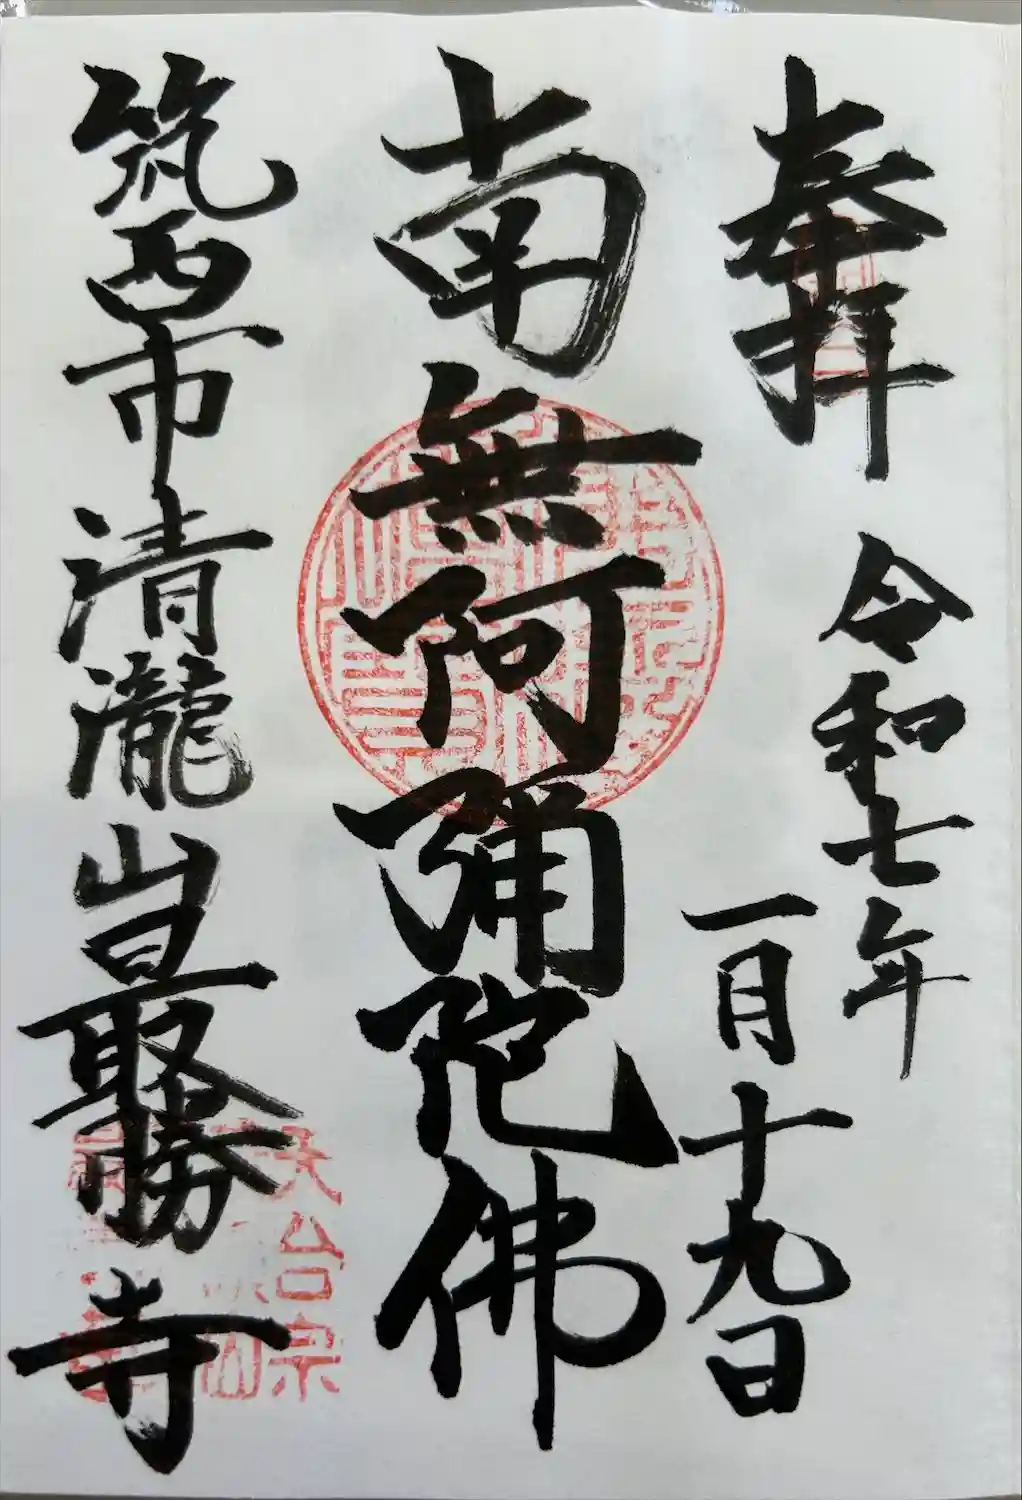 奉拜
令和七年
一月十九日
南無阿彌陀佛
筑西市清瀧山最勝寺
天台宗